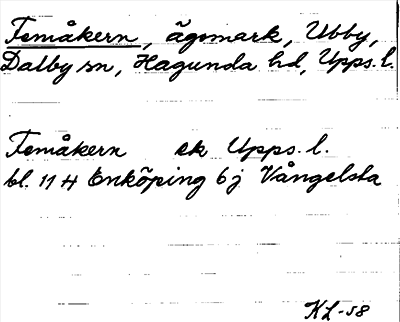 Femåkern, ägomark, Ubby,
Dalby sn, Hagunda hd, Upps. l.
Femåkern ek Upps. l.
bl. 11 H Enköping 6 j Vångelsta
KL-58